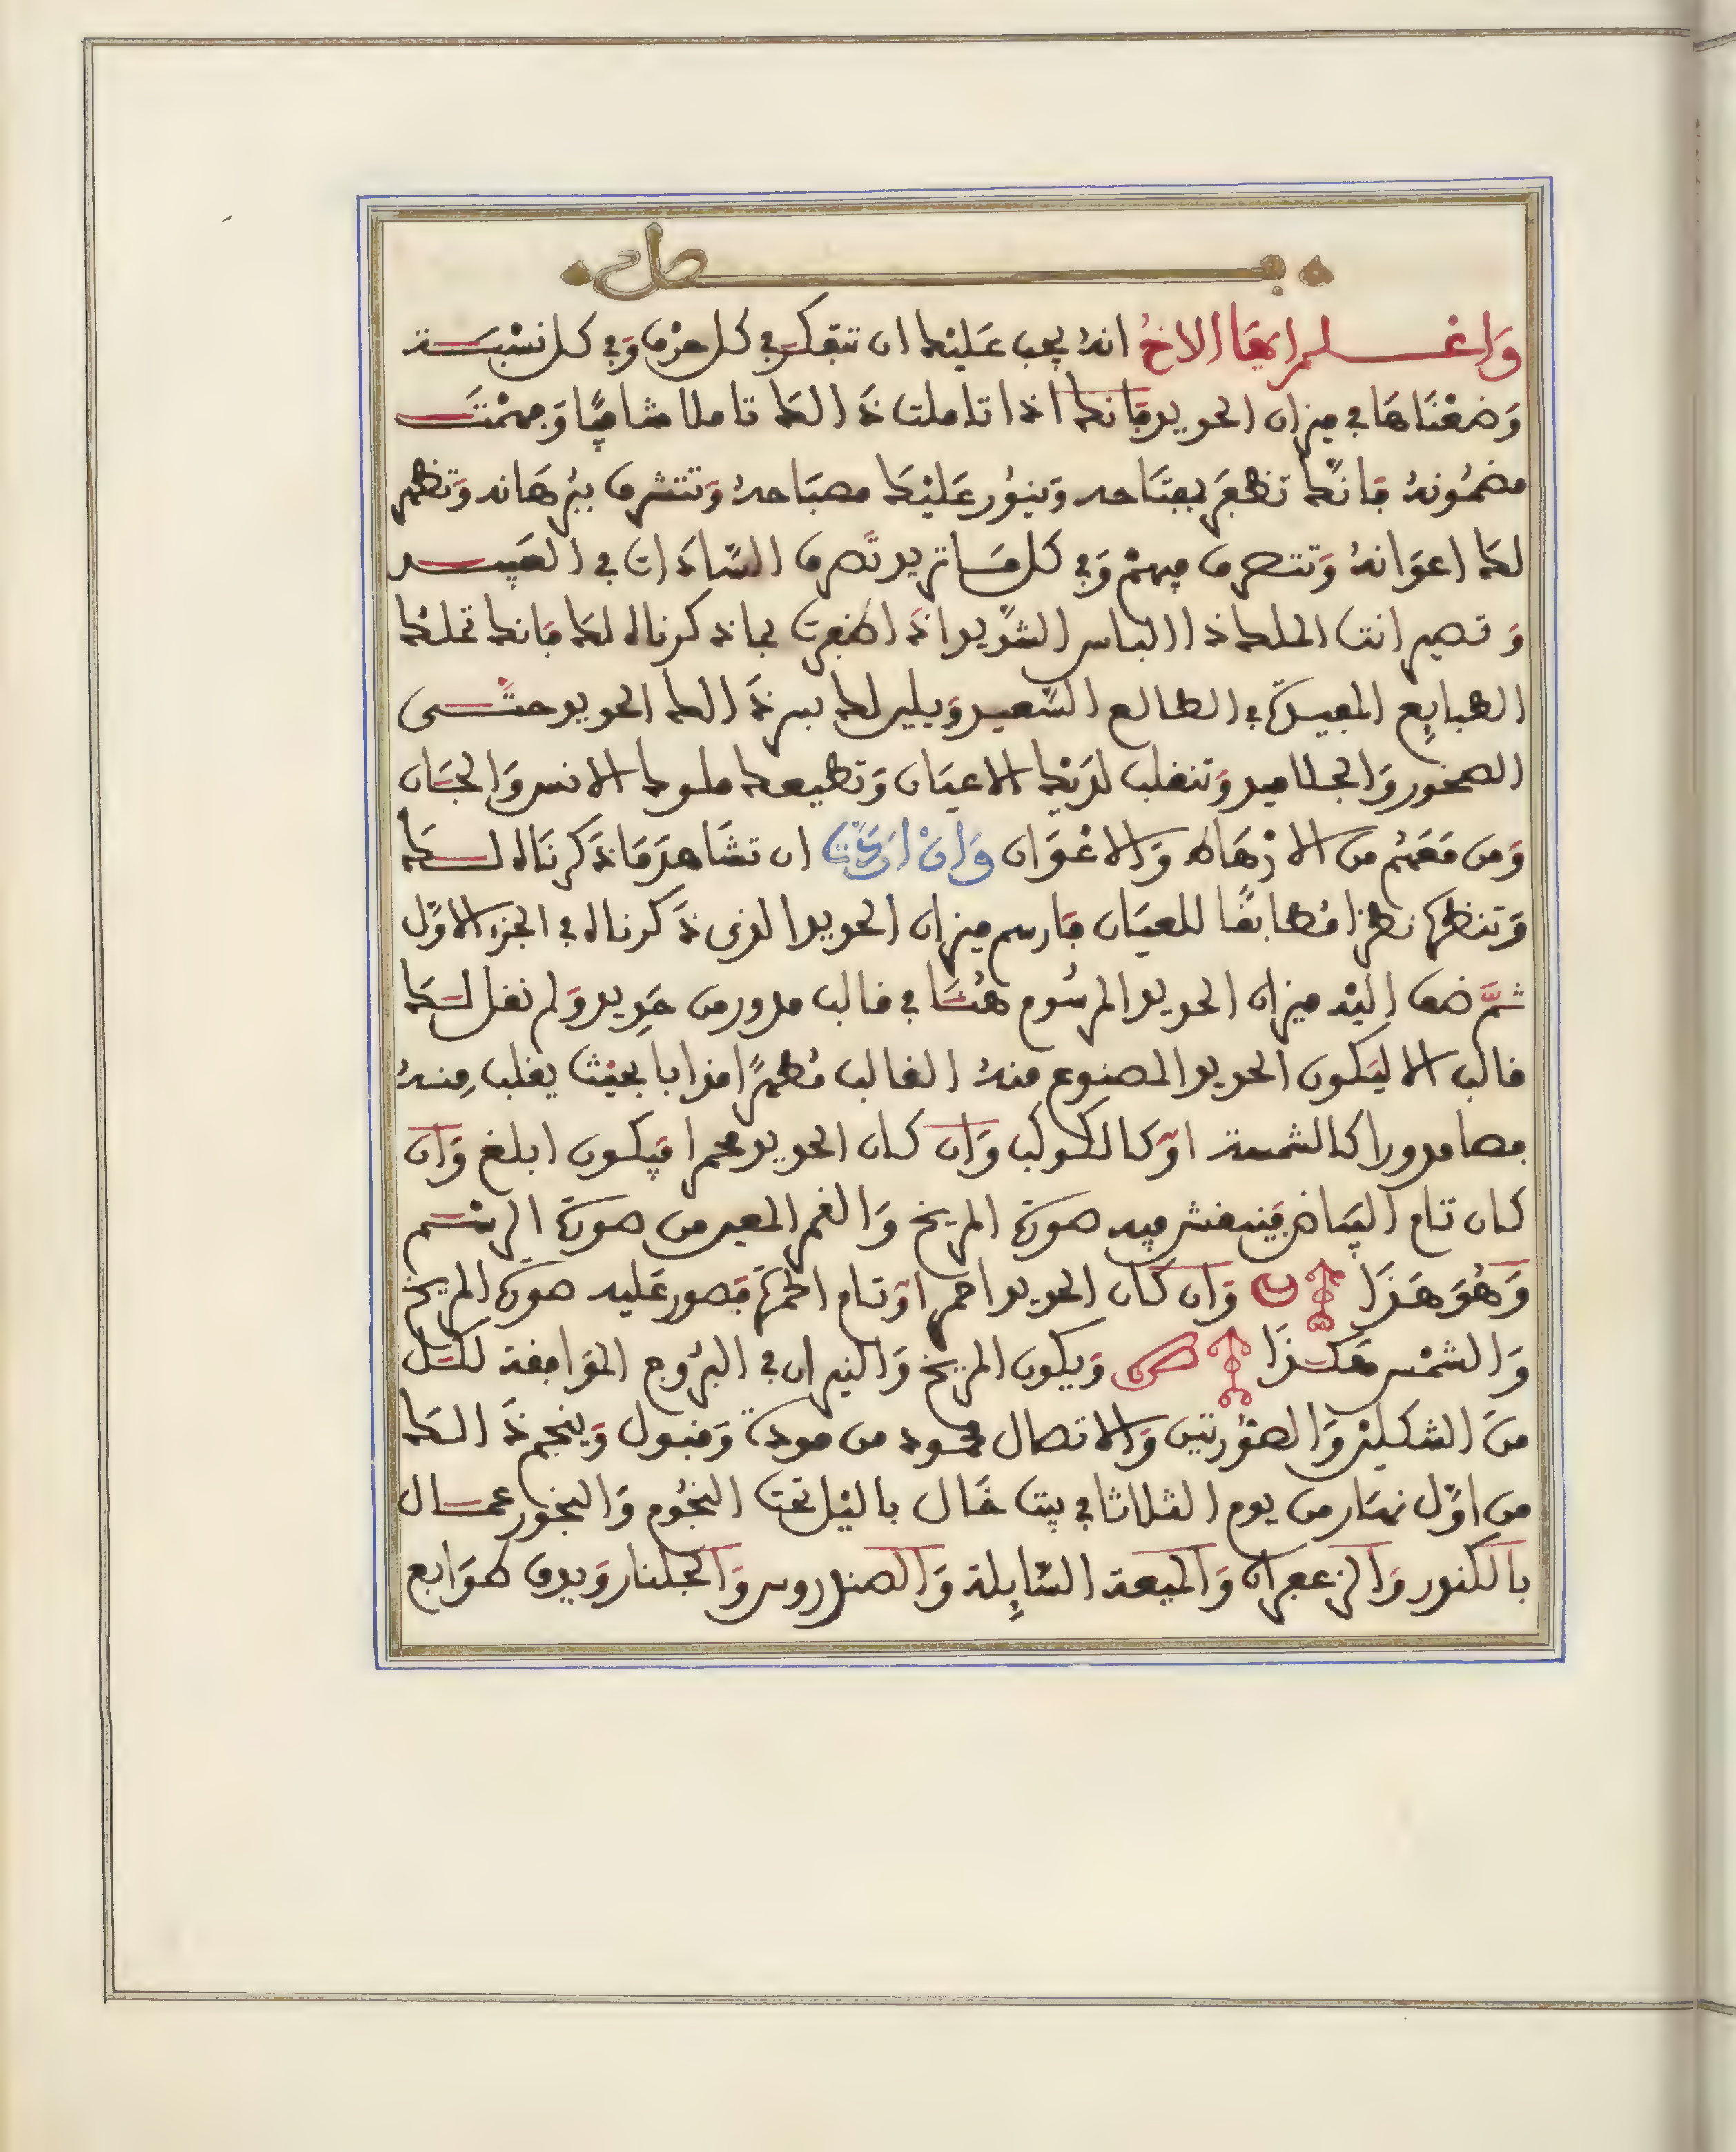 فصل
وَاعْلم ايها الاخُ انهُ يجب عَليْك ان تتفكر في كل حرْف وَفي كل نسْبَة
وَضعْنَاهَا في ميزان الحديد فَانك اذا تاملت ذَالك تاملا شافيًا وَفهمْتَ
مضمُونهُ فَانَّك تظفَر بمفتَاحه وَينوُر عَليْك مصبَاحهُ وَتتشرف ببُرهَانه وَتظهر
لك اعوَانهُ وَتتصرف فيهمْ وَفي كل مَا تريد تَصرف السَّادَات في العَبيد
وَتصير انت الملك ذا الباس الشَّديد اذَا ظفرت بما ذكرناه لك فَانك تملك
الطبايِع المفيدَة في الطالع السَّعيد وَيلين لك بسر ذَالك الحديد حتَّى
الصخور وَالجلاميد وَتنقلب لدَيْك الاعيَان وَتطيعك ملوك الانس وَالجَان
وَمن مَعَهُم من الارْهَاط وَالاعْوَان وَانْ ارَدْتَ ان تشَاهدَ مَا ذَكرنَاه لَك
وَتنظر نظرا مُطابقًا للعيَان فَارسم ميزان الحديد الذى ذَكرناه في الجزء الاوَّل
ثمَّ ضف اليْه ميزان الحديد المرسُوم هُنَا في قالب مدور من حَدِيد وَلم نقل لَك
قالب الا ليَكون الحديد المصنوع منهُ القالب مُطهرًا مذابا بحيْث يقلب مِنهُ
فصا مدورا كالشمسة اوْ كالكوكب وَان كان الحديد محمرا فيَكون ابلغ وَان
كان تام البيَاض فَينقش فيه صورَة المريخ وَالقمر المعبر من صورَة الرسْم
وَهُوَ هَذَا وَان كان الحديد احمر اوْ تام الحمرَة فَصور عَليه صورَة المريخ
وَالشمْس هَكذَا وَيكون المريخ وَالنيران في البرُوج الموَافقة لكل
منَ الشكليْن وَالصوُرتيْن وَالاتصال محمود من مودةً وَقبول وَينجم ذَالك
من اوَّل نهَار من يوم الثلاثا في بيت خَال بالليْل تحت النجُوم وَالبخور عمال
بالكندر وَالزعفران وَالميعة السَّايلة وَالصندروس وَالجلنار وَيدق طوَابع